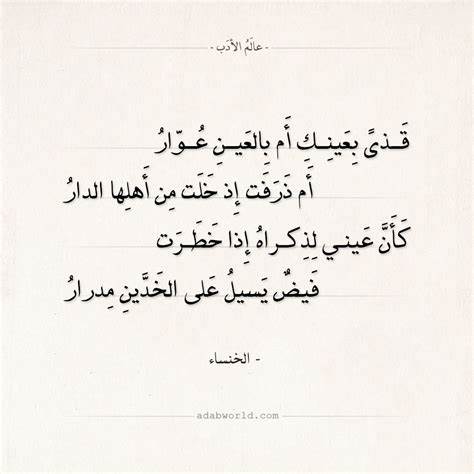 - عالَمُ الأدَب -
قَــذىً بِعَينِــكِ أَم بِالعَيــنِ عُــوّارُ
أَم ذَرَفَت إِذ خَلَت مِن أَهلِها الدارُ
كَأَنَّ عَينــي لِذِكــراهُ إِذا خَطَــرَت
فَيضٌ يَسيلُ عَلى الخَدَّينِ مِدرارُ
- الخنساء
adabworld.com